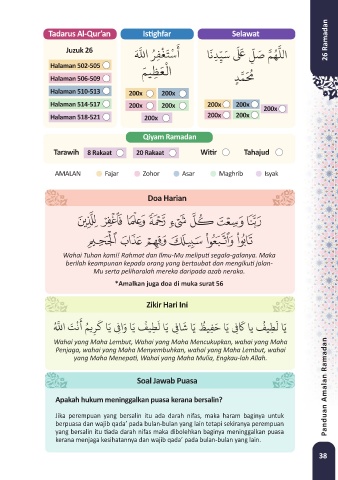 Tadarus Al-Qur'an
Juzuk 26
Halaman 502-505
Halaman 506-509
Halaman 510-513
Halaman 514-517
Halaman 518-521
Istighfar
أَسْتَغْفِرُ اللَّهَ
الْعَظِيمَ
200x 200x
200x 200x
200x
Selawat
اللَّهُمَّ صَلِّ عَلَى سَيِّدِنَا
مُحَمَّدٍ
200x 200x
200x
200x 200x
26 Ramadan
Qiyam Ramadan
Tarawih 8 Rakaat 20 Rakaat Witir Tahajud
AMALAN Fajar Zohor Asar Maghrib Isyak
Doa Harian
رَبَّنَا وَسِعْتَ كُلَّ شَيْءٍ رَّحْمَةً وَعِلْمًا فَاغْفِرْ لِلَّذِينَ
تَابُوا وَاتَّبَعُوا سَبِيلَكَ وَقِهِمْ عَذَابَ الْجَحِيمِ
Wahai Tuhan kami! Rahmat dan Ilmu-Mu meliputi segala-galanya. Maka
berilah keampunan kepada orang yang bertaubat dan mengikuti jalan-
Mu serta peliharalah mereka daripada azab neraka.
*Amalkan juga doa di muka surat 56
Zikir Hari Ini
يَا لَطِيفُ يَا كَافِي يَا حَفِيظُ يَا شَافِي يَا لَطِيفُ يَا وَافِي يَا كَرِيمُ أَنْتَ اللَّهُ
Wahai yang Maha Lembut, Wahai yang Maha Mencukupkan, wahai yang Maha
Penjaga, wahai yang Maha Menyembuhkan, wahai yang Maha Lembut, wahai
yang Maha Menepati, Wahai yang Maha Mulia, Engkau-lah Allah.
Soal Jawab Puasa
Apakah hukum meninggalkan puasa kerana bersalin?
Jika perempuan yang bersalin itu ada darah nifas, maka haram baginya untuk
berpuasa dan wajib qada' pada bulan-bulan yang lain tetapi sekiranya perempuan
yang bersalin itu tiada darah nifas maka dibolehkan baginya meninggalkan puasa
kerana menjaga kesihatannya dan wajib qada' pada bulan-bulan yang lain.
Panduan Amalan Ramadan
38